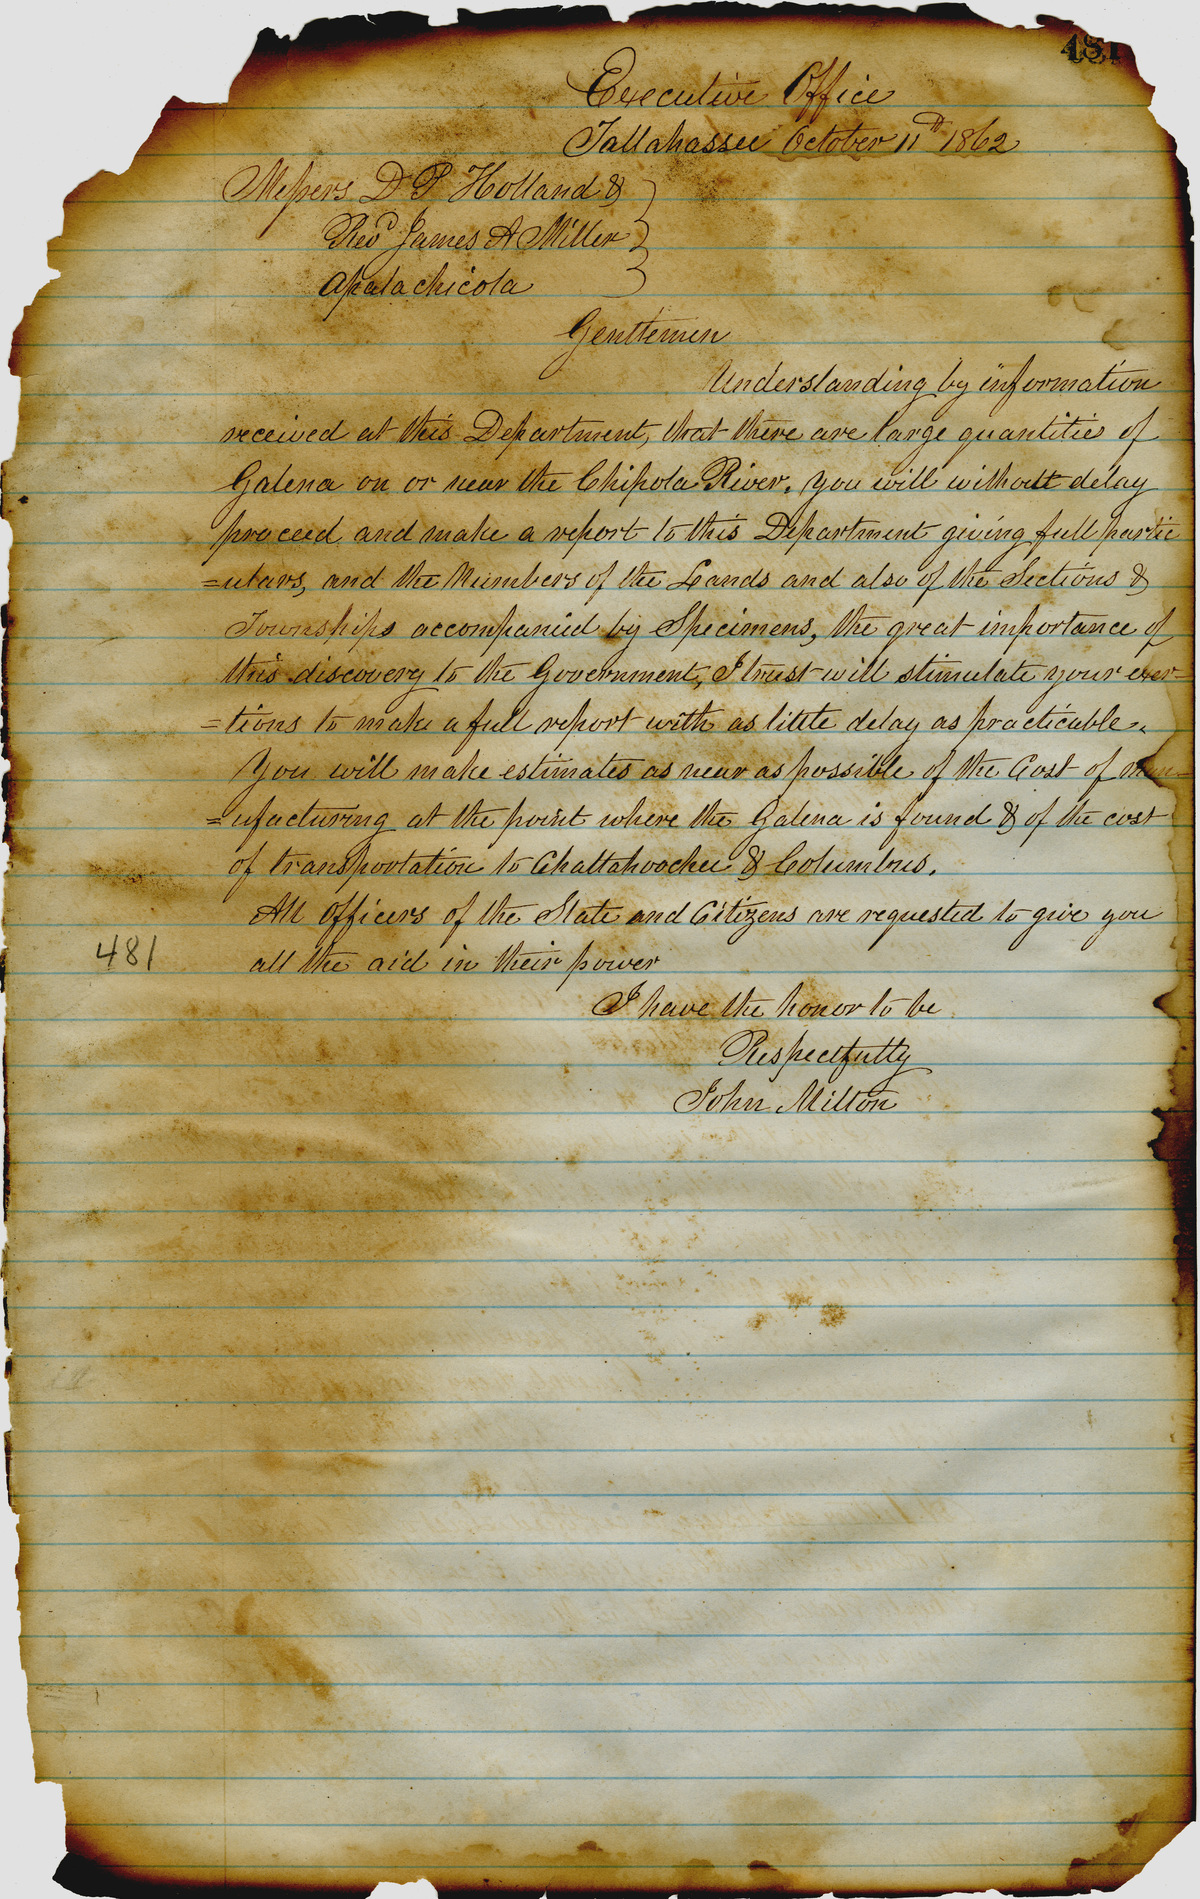 481
Executive Office
Tallahassee October 11th 1862
Messrs D P Holland &
Revd James A Miller
Apalachicola
Gentlemen
Understanding by information
received at this Department, that there are large quantities of
Galena on or near the Chipola River. You will without delay
proceed and make a report to this Department giving full partic
=ulars, and the Numbers of the Lands and also of the Sections &
Townships accompanied by Specimens, the great importance of
this discovery to the Government, I trust will stimulate your exer-
=tions to make a full report with as little delay as practicable.
You will make estimates as near as possible of the Cost of man=
=ufacturing at the point where the Galena is found & of the cost
of transportation to Chattahoochee & Columbus.
All Officers of the State and Citizens are requested to give you
481
all the aid in their power
I have the honor to be
Respectfully
John Milton